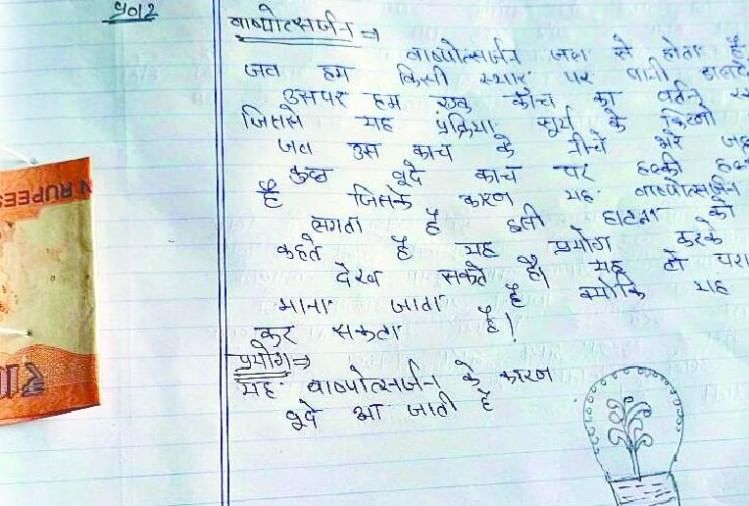 ५०१२
वाष्पोत्सर्जन ⇒
वाष्पोत्सर्जन जल से होता है
जब हम किसी स्थान पर पानी डालते
उसपर हम एक काँच का बर्तन
जिससे यह प्रक्रिया सूर्य के किरणो
जल उस काच के नीचे और
कुछ बूदे काच पर हल्की
है जिसके कारण यह वाष्पोत्सर्जन
लगता है इसी घटना को
कहते है यह प्रयोग करके
देख सकते है। यह तो
माना जाता है क्योकि यह
कर सकता है।
प्रयोग ⇒
यह वाष्पोत्सर्जन के कारण
बूदे आ जाती है
N RUPEES
₹10